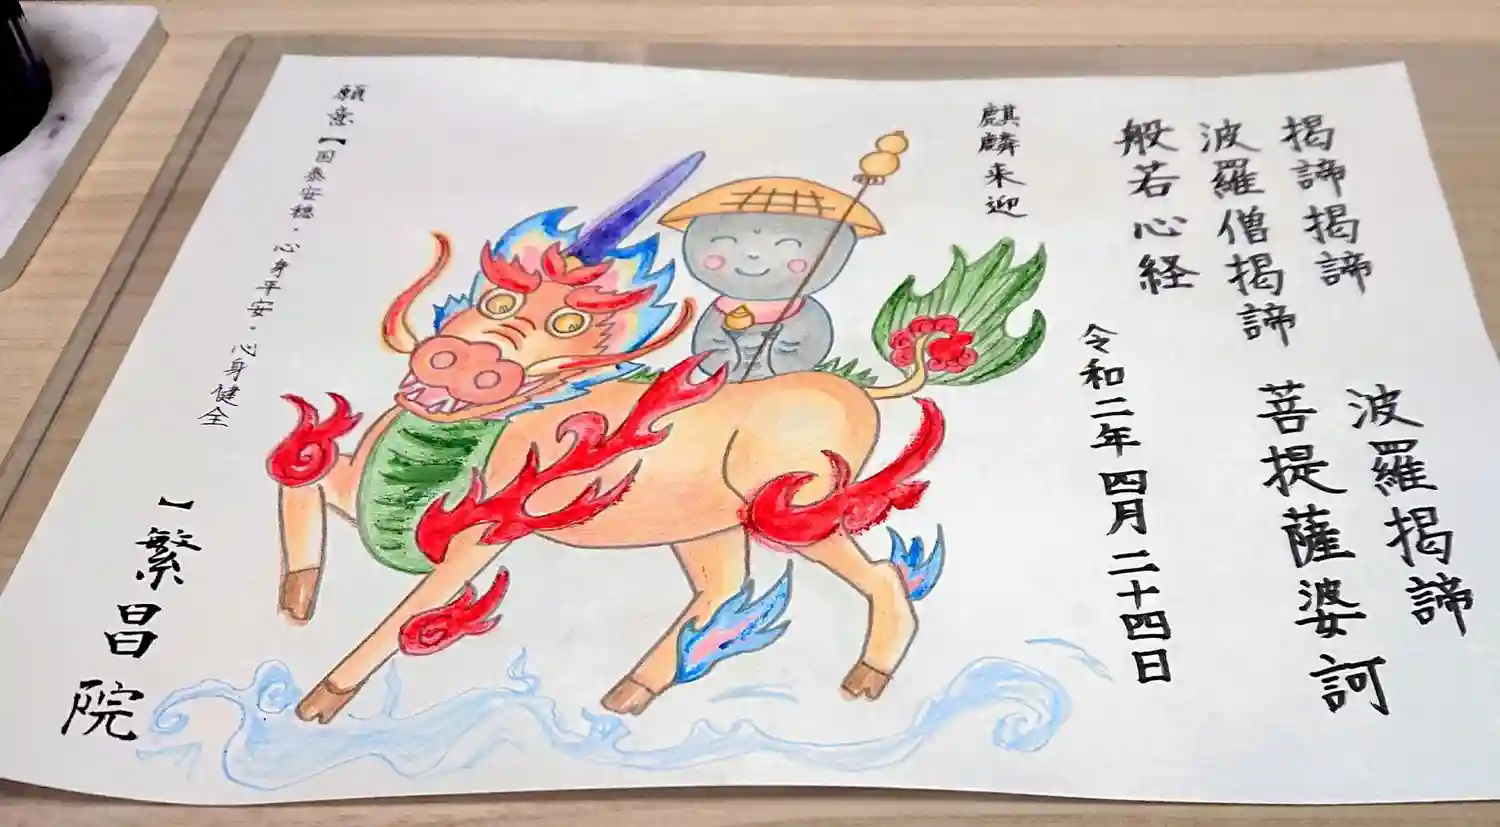 揭諦揭諦
波羅揭諦
波羅僧揭諦
菩提薩婆訶
般若心経
令和二年四月二十四日
麒麟来迎
願意【国泰安穏・心身平安・心身健全】
繁昌院